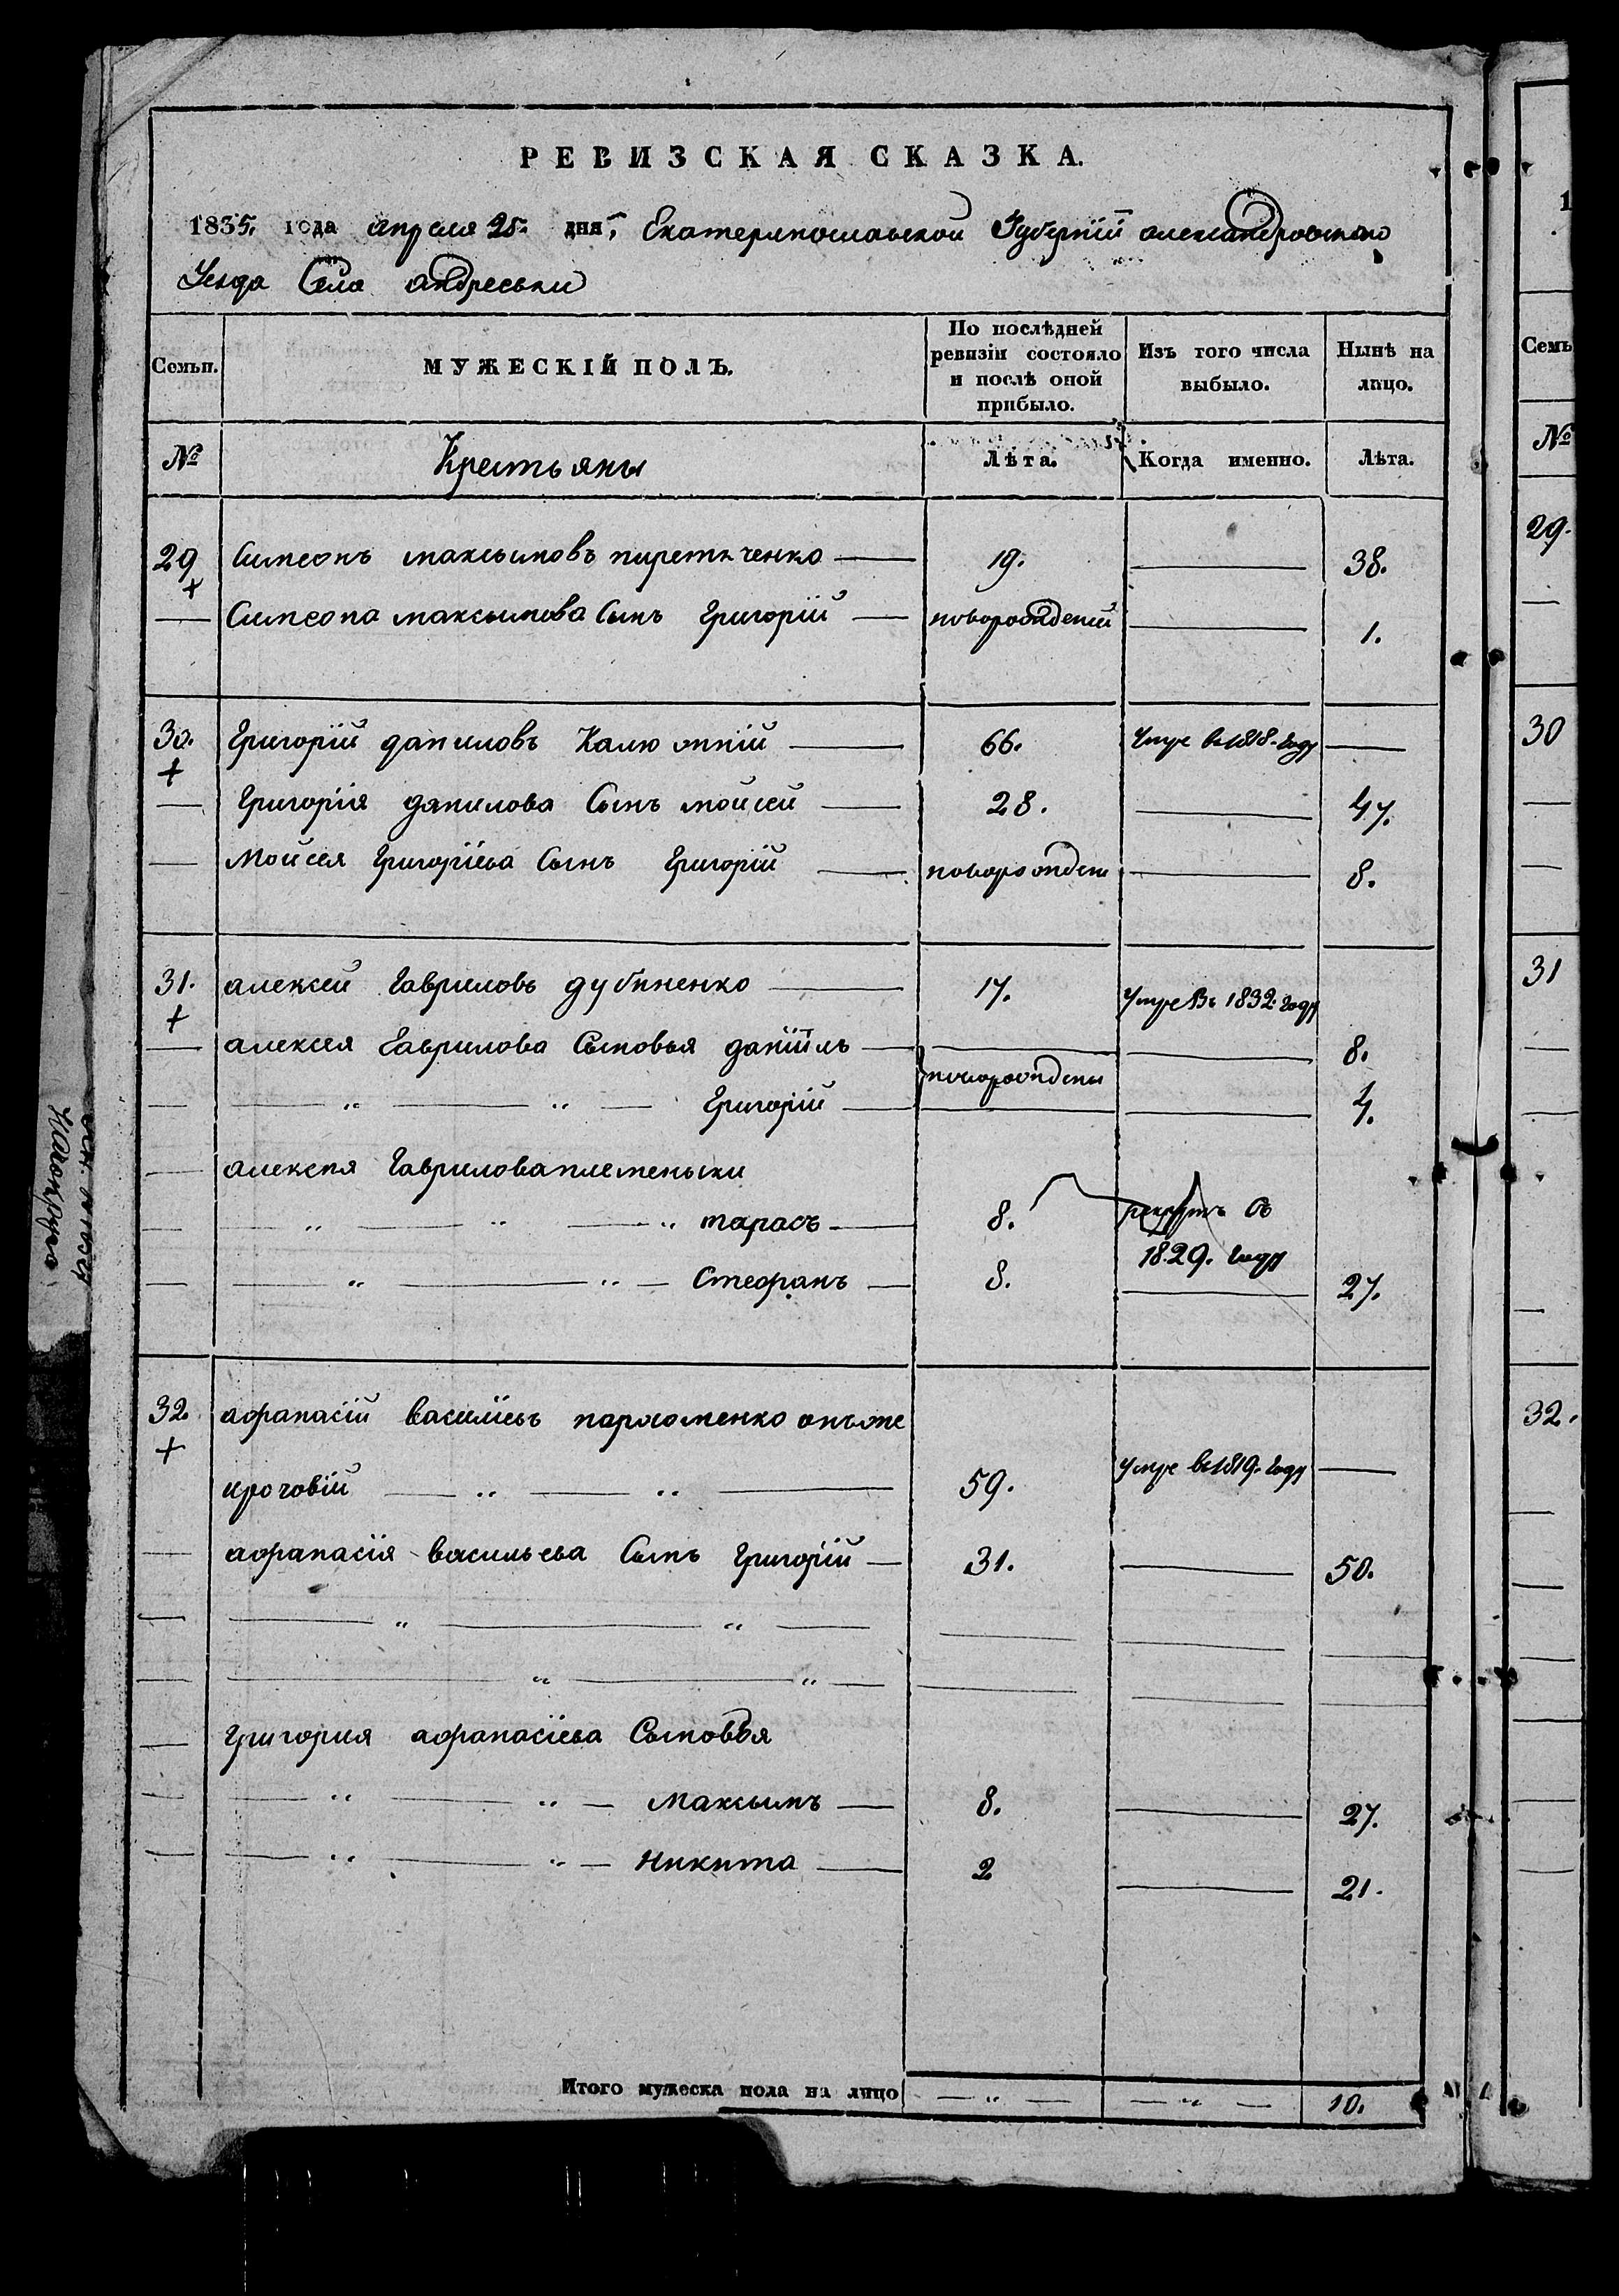 РЕВИЗСКАЯ СКАЗКА.
1835. года апреля 25. дня, Екатеринославской Губернїи александровского
Уезда Села андреевки
Семьи. МУЖЕСКІЙ ПОЛЪ. По послѣдней ревизіи состояло и послѣ оной прибыло. Изъ того числа выбыло. Нынѣ на лицо.
№ Крестьяны Лѣта. Когда именно. Лѣта.
29 Симеонъ максымовъ 19. 38.
Симеона максымова Сынъ Григорїй новорожденій 1.
30. Григорїй даниловъ 66. Умре в 1818. году
Григорїя данилова Сынъ мойсей 28. 47.
Мойсея Григорїева Сынъ Григорїй новорожден 8.
31. алексей Гавриловъ дубиненко 17. умре Въ 1832. году
алексея Гаврилова Сыновья данїилъ 8.
новорождены
Григорїй 4.
алексея Гаврилова племеныки
тарасъ 8. рекрутъ въ
1829. году
Стефанъ 8. 27.
32. афанасїй василїевъ пархоменко онъже
59. умре в 1819. году
афанасїя васильева Сынъ Григорїй 31. 50.
Григория афанасїева Сыновья
Максымъ 8. 27.
Никита 2 21.
Итого мужеска пола на лицо 10.
Семь
№
29.
30
31
32.